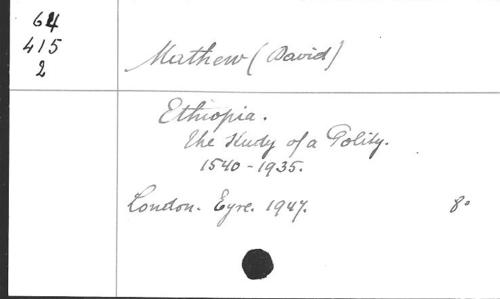 64
415
2
Mathew (David)
Ethiopia.
The Study of a Polity.
1540-1935.
London. Eyre. 1947. 8°